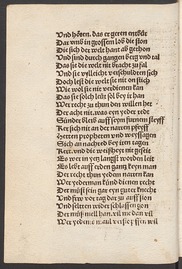 Und hören. das er geren entöde
Dar umb in grossem lob des son
Die sich der welt hant ab gethon
Und sind durch gangen berg vnd tal
Das sie die welt nit bracht zu fal
Und sie villeicht verschulden sich
Doch lest die welt sie nit on stich
Wie wol sie nit verdienen kan
Das sie solch leüt sol bey ir han
Wer recht zu thun den willen het
Der acht nit was eyn yeder redt
Sunder bleib auff seym fürnem steyff
Ker sich nit an der narren pfeyff
Hetten propheten vnd weyssagen
Sich an nachred bey iren tagen
Kert vnd die weißheyt nit geseit
Es wer in yetz langst worden leit
Es lebt auff erden gantz keyn man
Der recht thun yedem narren kan
Wer yederman künd dienen recht
Der müst sein gar eyn guter knecht
Und frü vor tag dar zu auff ston
Und selten wider schlaffen gon
Der müß mell han. vil me dan vil
Wer yedem das maul verstopffen wil